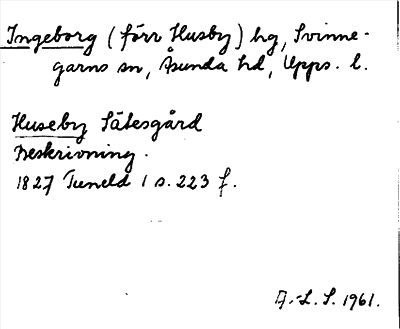 Ingeborg (förr Husby) hg, Svinne-
garns sn, Åsunda hd, Upps. l.
Huseby Sätesgård
Beskrivning.
1827 Tuneld 1 s. 223 f.
A.-L. S. 1961.